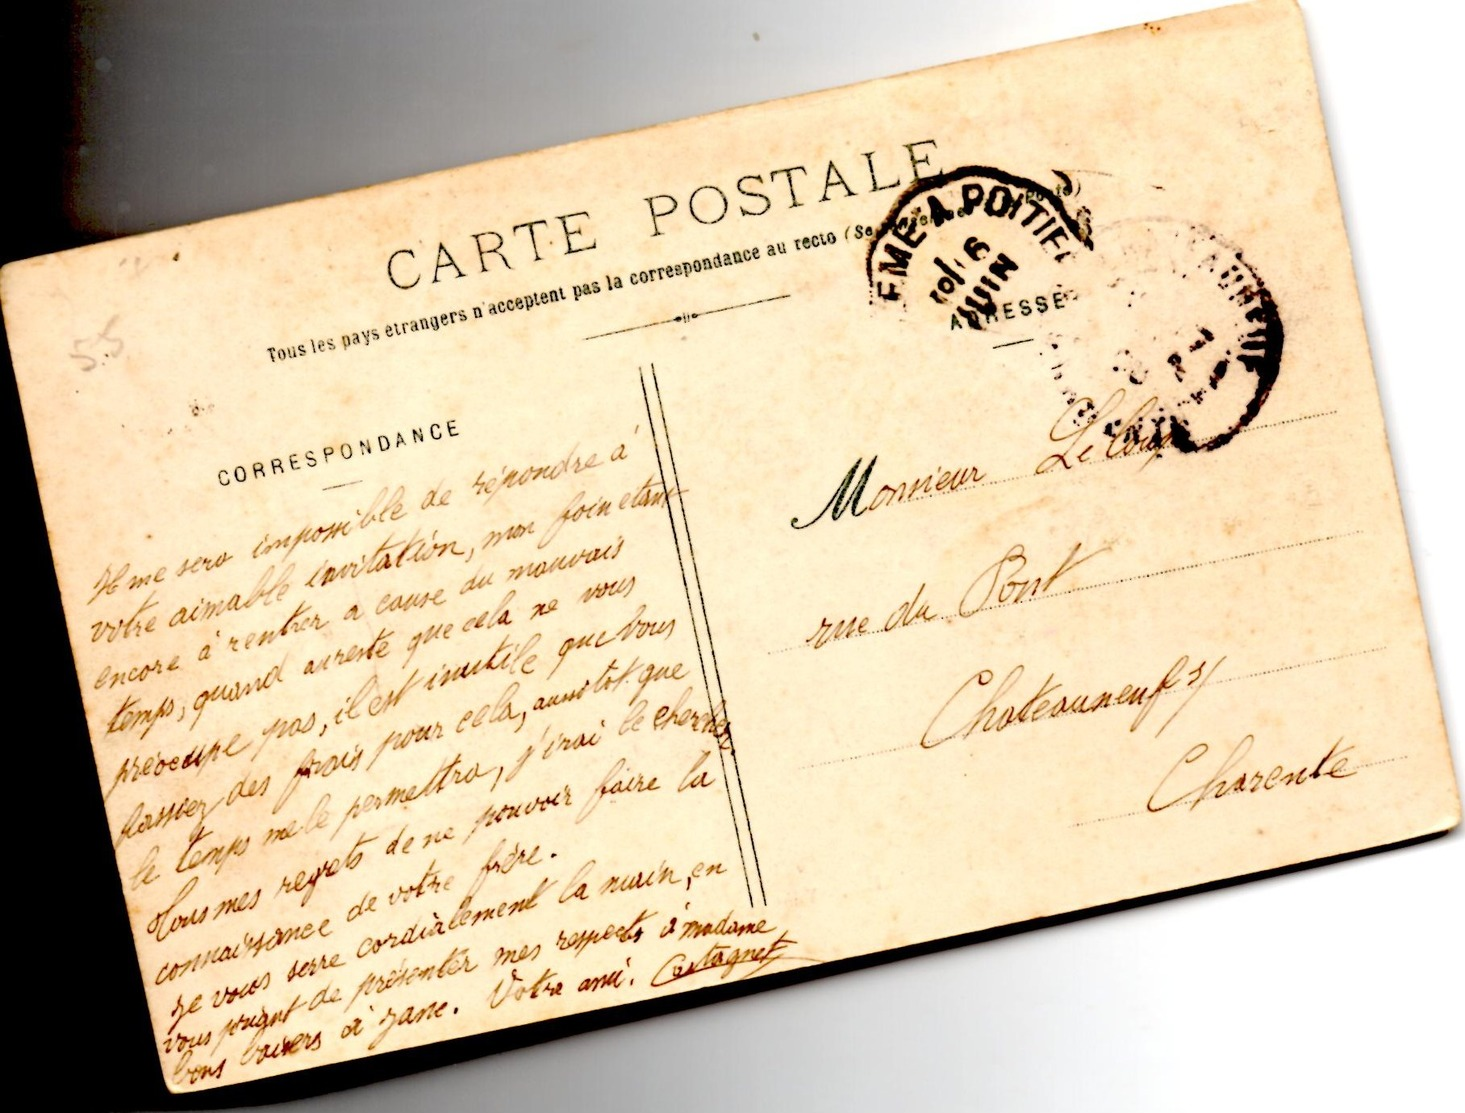 CARTE POSTALE
Tous les pays étrangers n'acceptent pas la correspondance au recto (Se
EME A POITIE
6
JUIN
ADRESSE
55
CORRESPONDANCE
Il me sera impossible de répondre à
votre aimable invitation, mon foin etant
encore à rentrer a cause du mauvais
temps, quand aureste que cela ne vous
préocupe pas, il est inutile que vous
fassiez des frais pour cela, aussitot que
le temps me le permettra, j'irai le chercher
Tous mes regrets de ne pouvoir faire la
connaissance de votre frère.
Je vous serre cordialement la main, en
vous priant de présenter mes respects à madame
bons baisers à Jane. Votre ami. Castagnet
Monsieur Leloup
rue du Pont
Chateauneuf s/
Charente